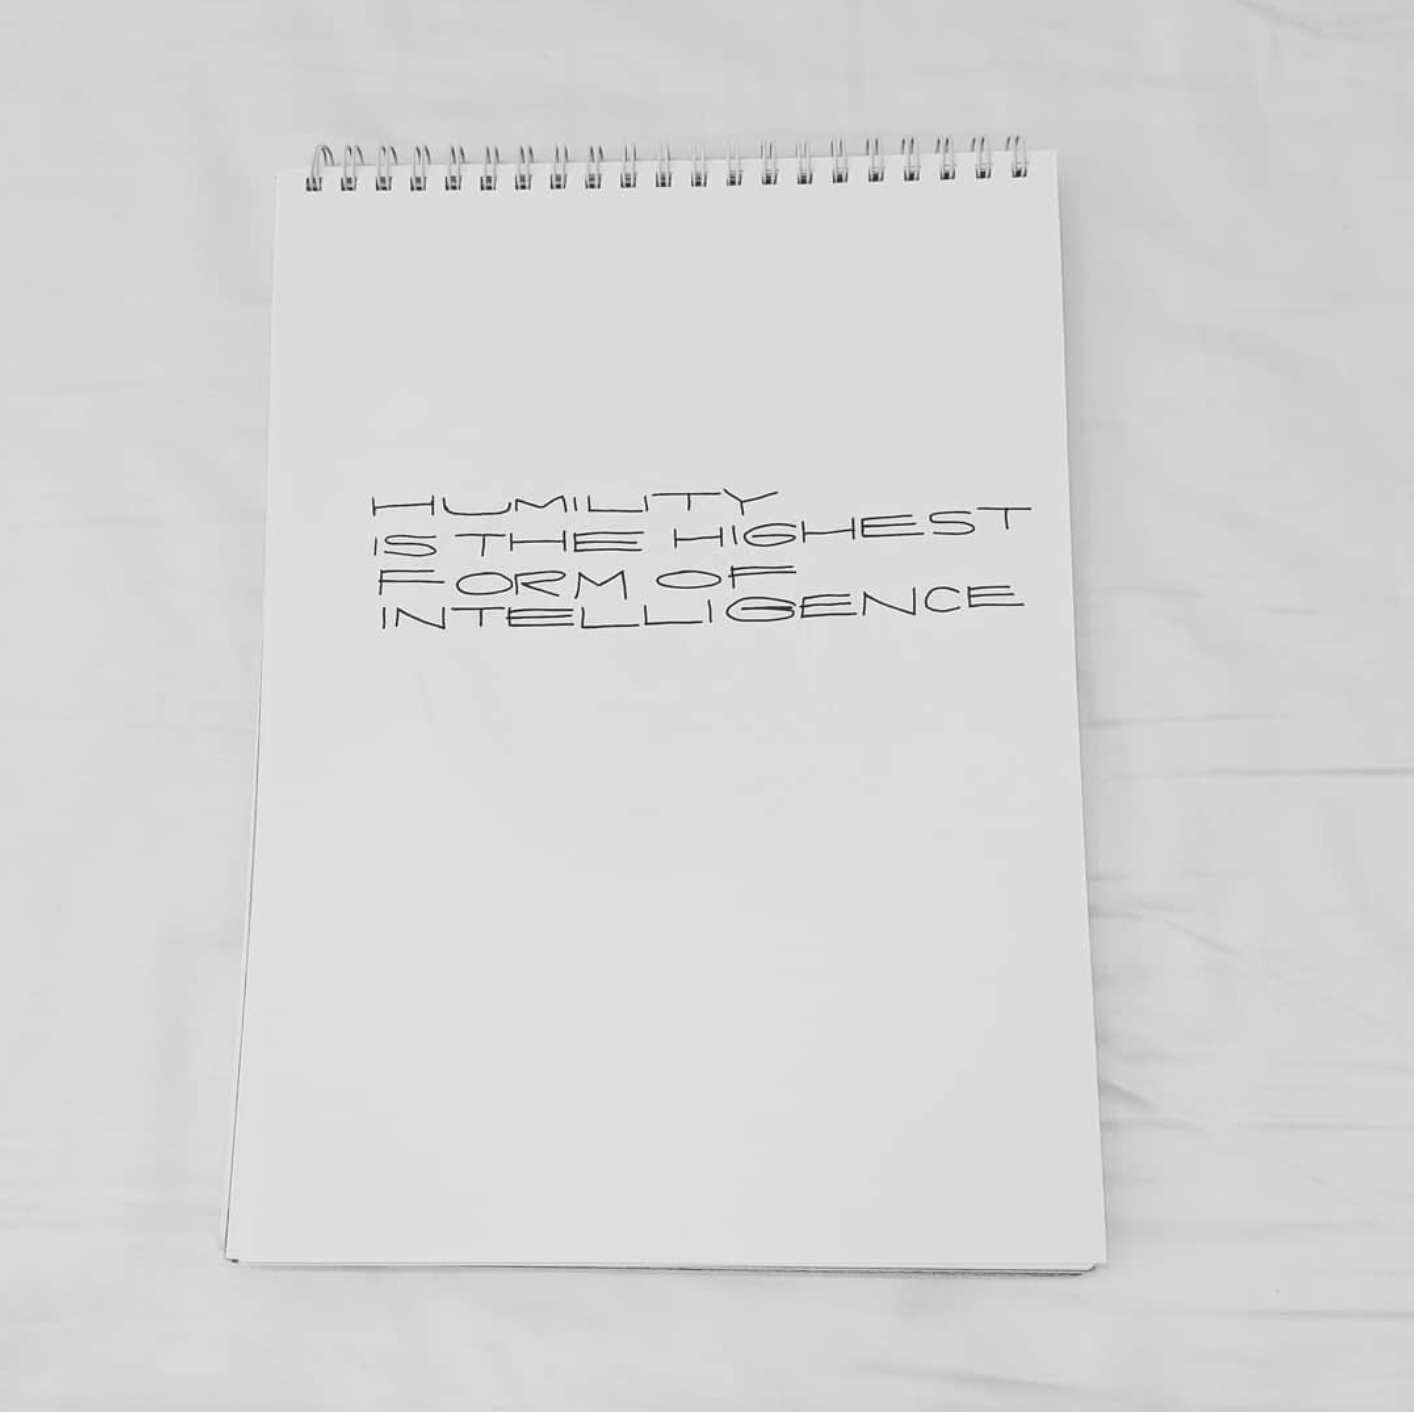 HUMILITY
IS THE HIGHEST
FORM OF
INTELLIGENCE